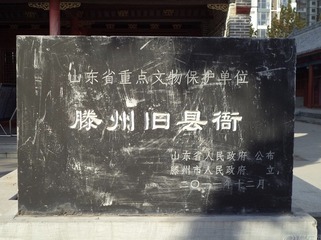 山东省重点文物保护单位
滕州旧县衙
山东省人民政府 公布
滕州市人民政府 立
二〇一三年十二月